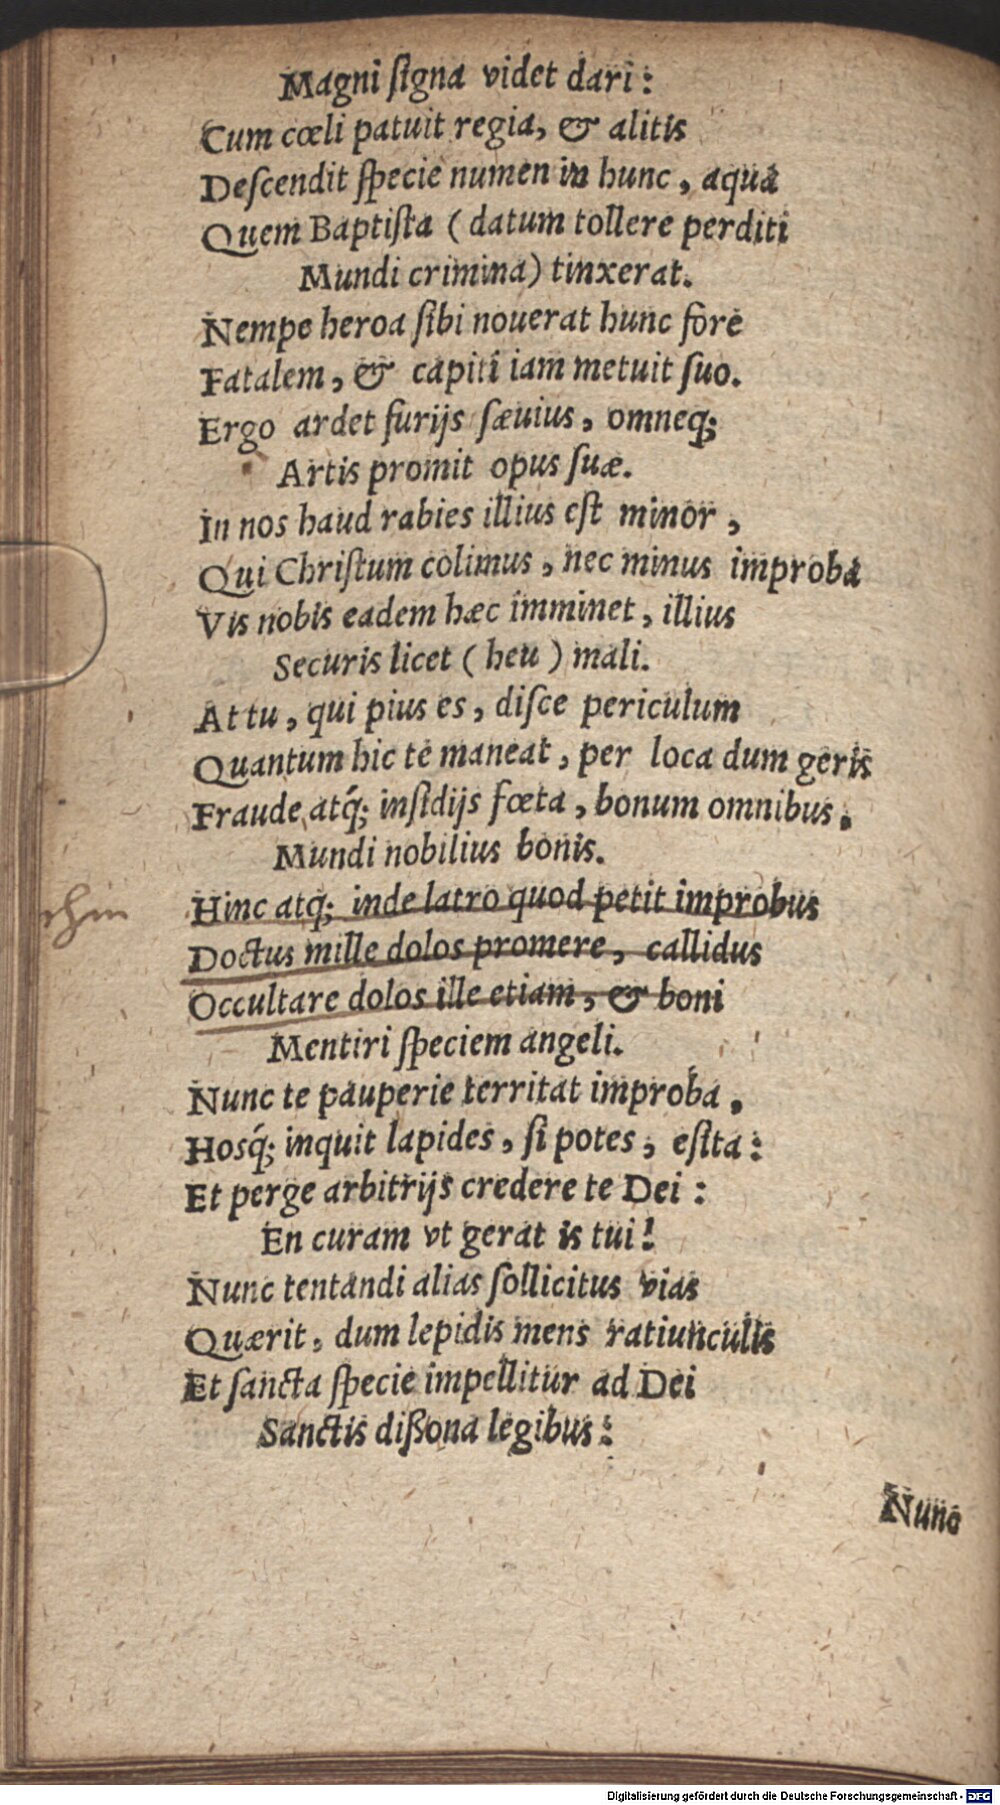 Magni ſigna videt dari:
Cum cœli patuit regia, & alitis
Deſcendit ſpecie numen in hunc, aqua
Quem Baptiſta (datum tollere perditi
Mundi crimina) tinxerat.
Nempe heroa ſibi nouerat hunc fore
Fatalem, & capiti iam metuit ſuo.
Ergo ardet furijs ſæuius, omneq;
Artis promit opus ſuæ.
In nos haud rabies illius eſt minor,
Qui Chriſtum colimus, nec minus improba
Vis nobis eadem hæc imminet, illius
Securis licet (heu) mali.
At tu, qui pius es, diſce periculum
Quantum hic te maneat, per loca dum geris
Fraude atq́; inſidijs fœta, bonum omnibus,
Mundi nobilius bonis.
Hinc atq́; inde latro quod petit improbus
Doctus mille dolos promere, callidus
Occultare dolos ille etiam, & boni
Mentiri ſpeciem angeli.
Nunc te pauperie territat improba,
Hosq́; inquit lapides, ſi potes, eſita:
Et perge arbitrijs credere te Dei:
En curam vt gerat is tui!
Nunc tentandi alias ſollicitus vias
Quærit, dum lepidis mens ratiunculis
Et ſancta ſpecie impellitur ad Dei
Sanctis dißona legibus:
Nunc
Digitalisierung gefördert durch die Deutsche Forschungsgemeinschaft - DFG